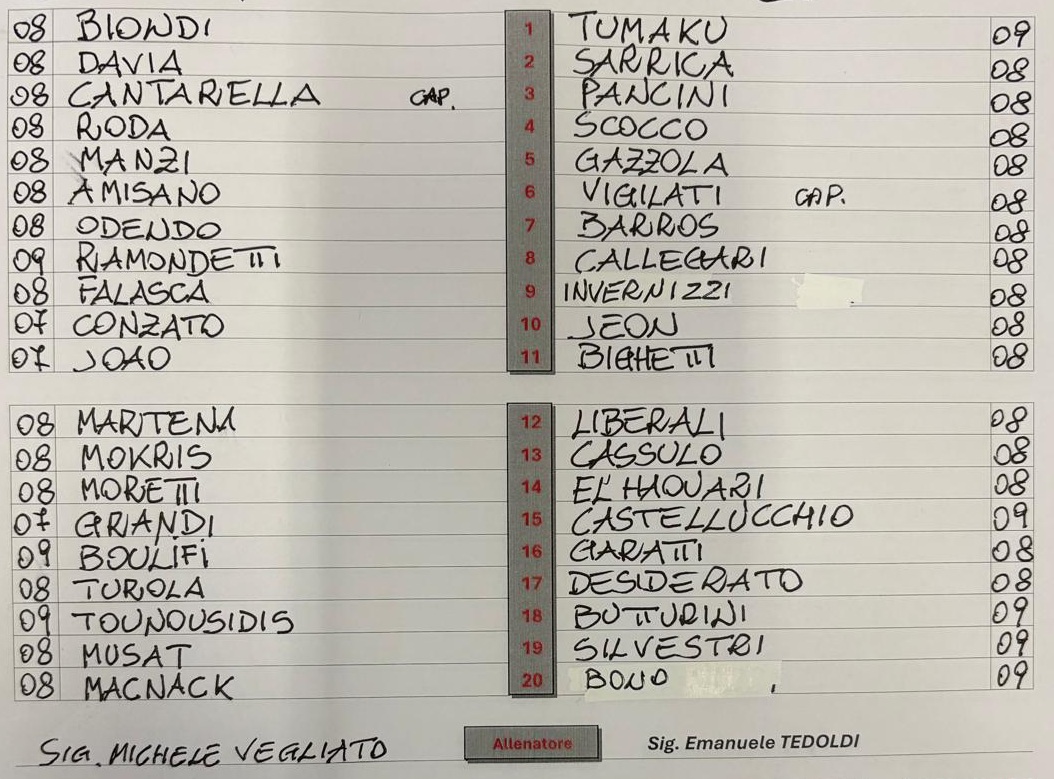 08 BIONDI 1 TUMAKU 09
08 DAVIA 2 SARRICA 08
08 CANTARELLA CAP. 3 PANCINI 08
08 RODA 4 SCOCCO 08
08 MANZI 5 GAZZOLA 08
08 AMISANO 6 VIGILATI CAP. 08
08 ODENDO 7 BARROS 08
09 RAMONDETTI 8 CALLEGARI 08
08 FALASCA 9 INVERNIZZI 08
07 CONZATO 10 JEON 08
07 JOAO 11 BIGHETTI 08
08 MARTENA 12 LIBERALI 08
08 MOKRIS 13 CASSULO 08
08 MORETTI 14 EL'HAOUARI 08
07 GRANDI 15 CASTELLUCCHIO 09
09 BOULIFI 16 GARATTI 08
08 TUROLA 17 DESIDERATO 08
09 TOUNOUSIDIS 18 BUTTURINI 09
08 MUSAT 19 SILVESTRI 09
08 MACNACK 20 BONO 09
SIG. MICHELE VEGLIATO Allenatore Sig. Emanuele TEDOLDI